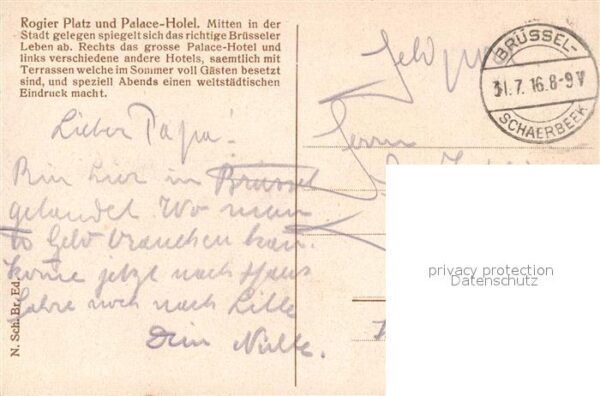 Rogier Platz und Palace-Holel. Mitten in der
Stadt gelegen spiegelt sich das richtige Brüsseler
Leben ab. Rechts das grosse Palace-Hotel und
links verschiedene andere Hotels, saemtlich mit
Terrassen welche im Sommer voll Gästen besetzt
sind, und speziell Abends einen weltstädtischen
Eindruck macht.
Lieber Papa!
Bin hier in Brüssel
gelandet Wo man
so Geld brauchen kan.
Komme jetzt nach Haus
Fahre noch nach Lille
Dein
N. Sch. Br. Ed.
Herrn
BRÜSSEL-
31.7.16.8-9V
SCHAERBEEK
privacy protection
Datenschutz